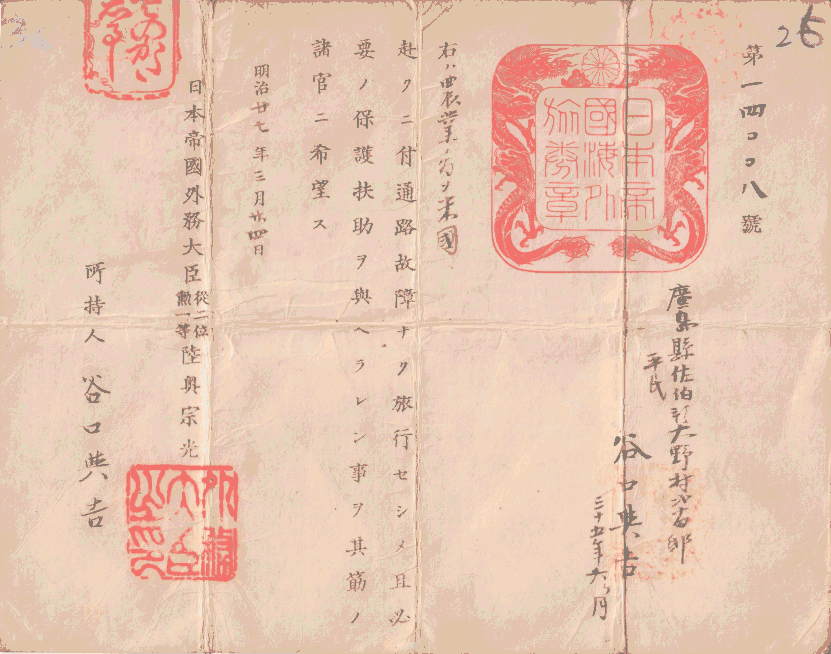 第一四〇〇八號
日本帝
國海外
旅券章
廣島縣佐伯郡大野村
平民
谷口典吉
三十五年六ヶ月
右ハ農業ノ為メ米國
赴クニ付通路故障ナク旅行セシメ且必
要ノ保護扶助ヲ與ヘラレン事ヲ其筋ノ
諸官ニ希望ス
明治廿七年三月廿四日
日本帝國外務大臣從二位勲一等陸奥宗光
外務
大臣
之印
所持人 谷口典吉